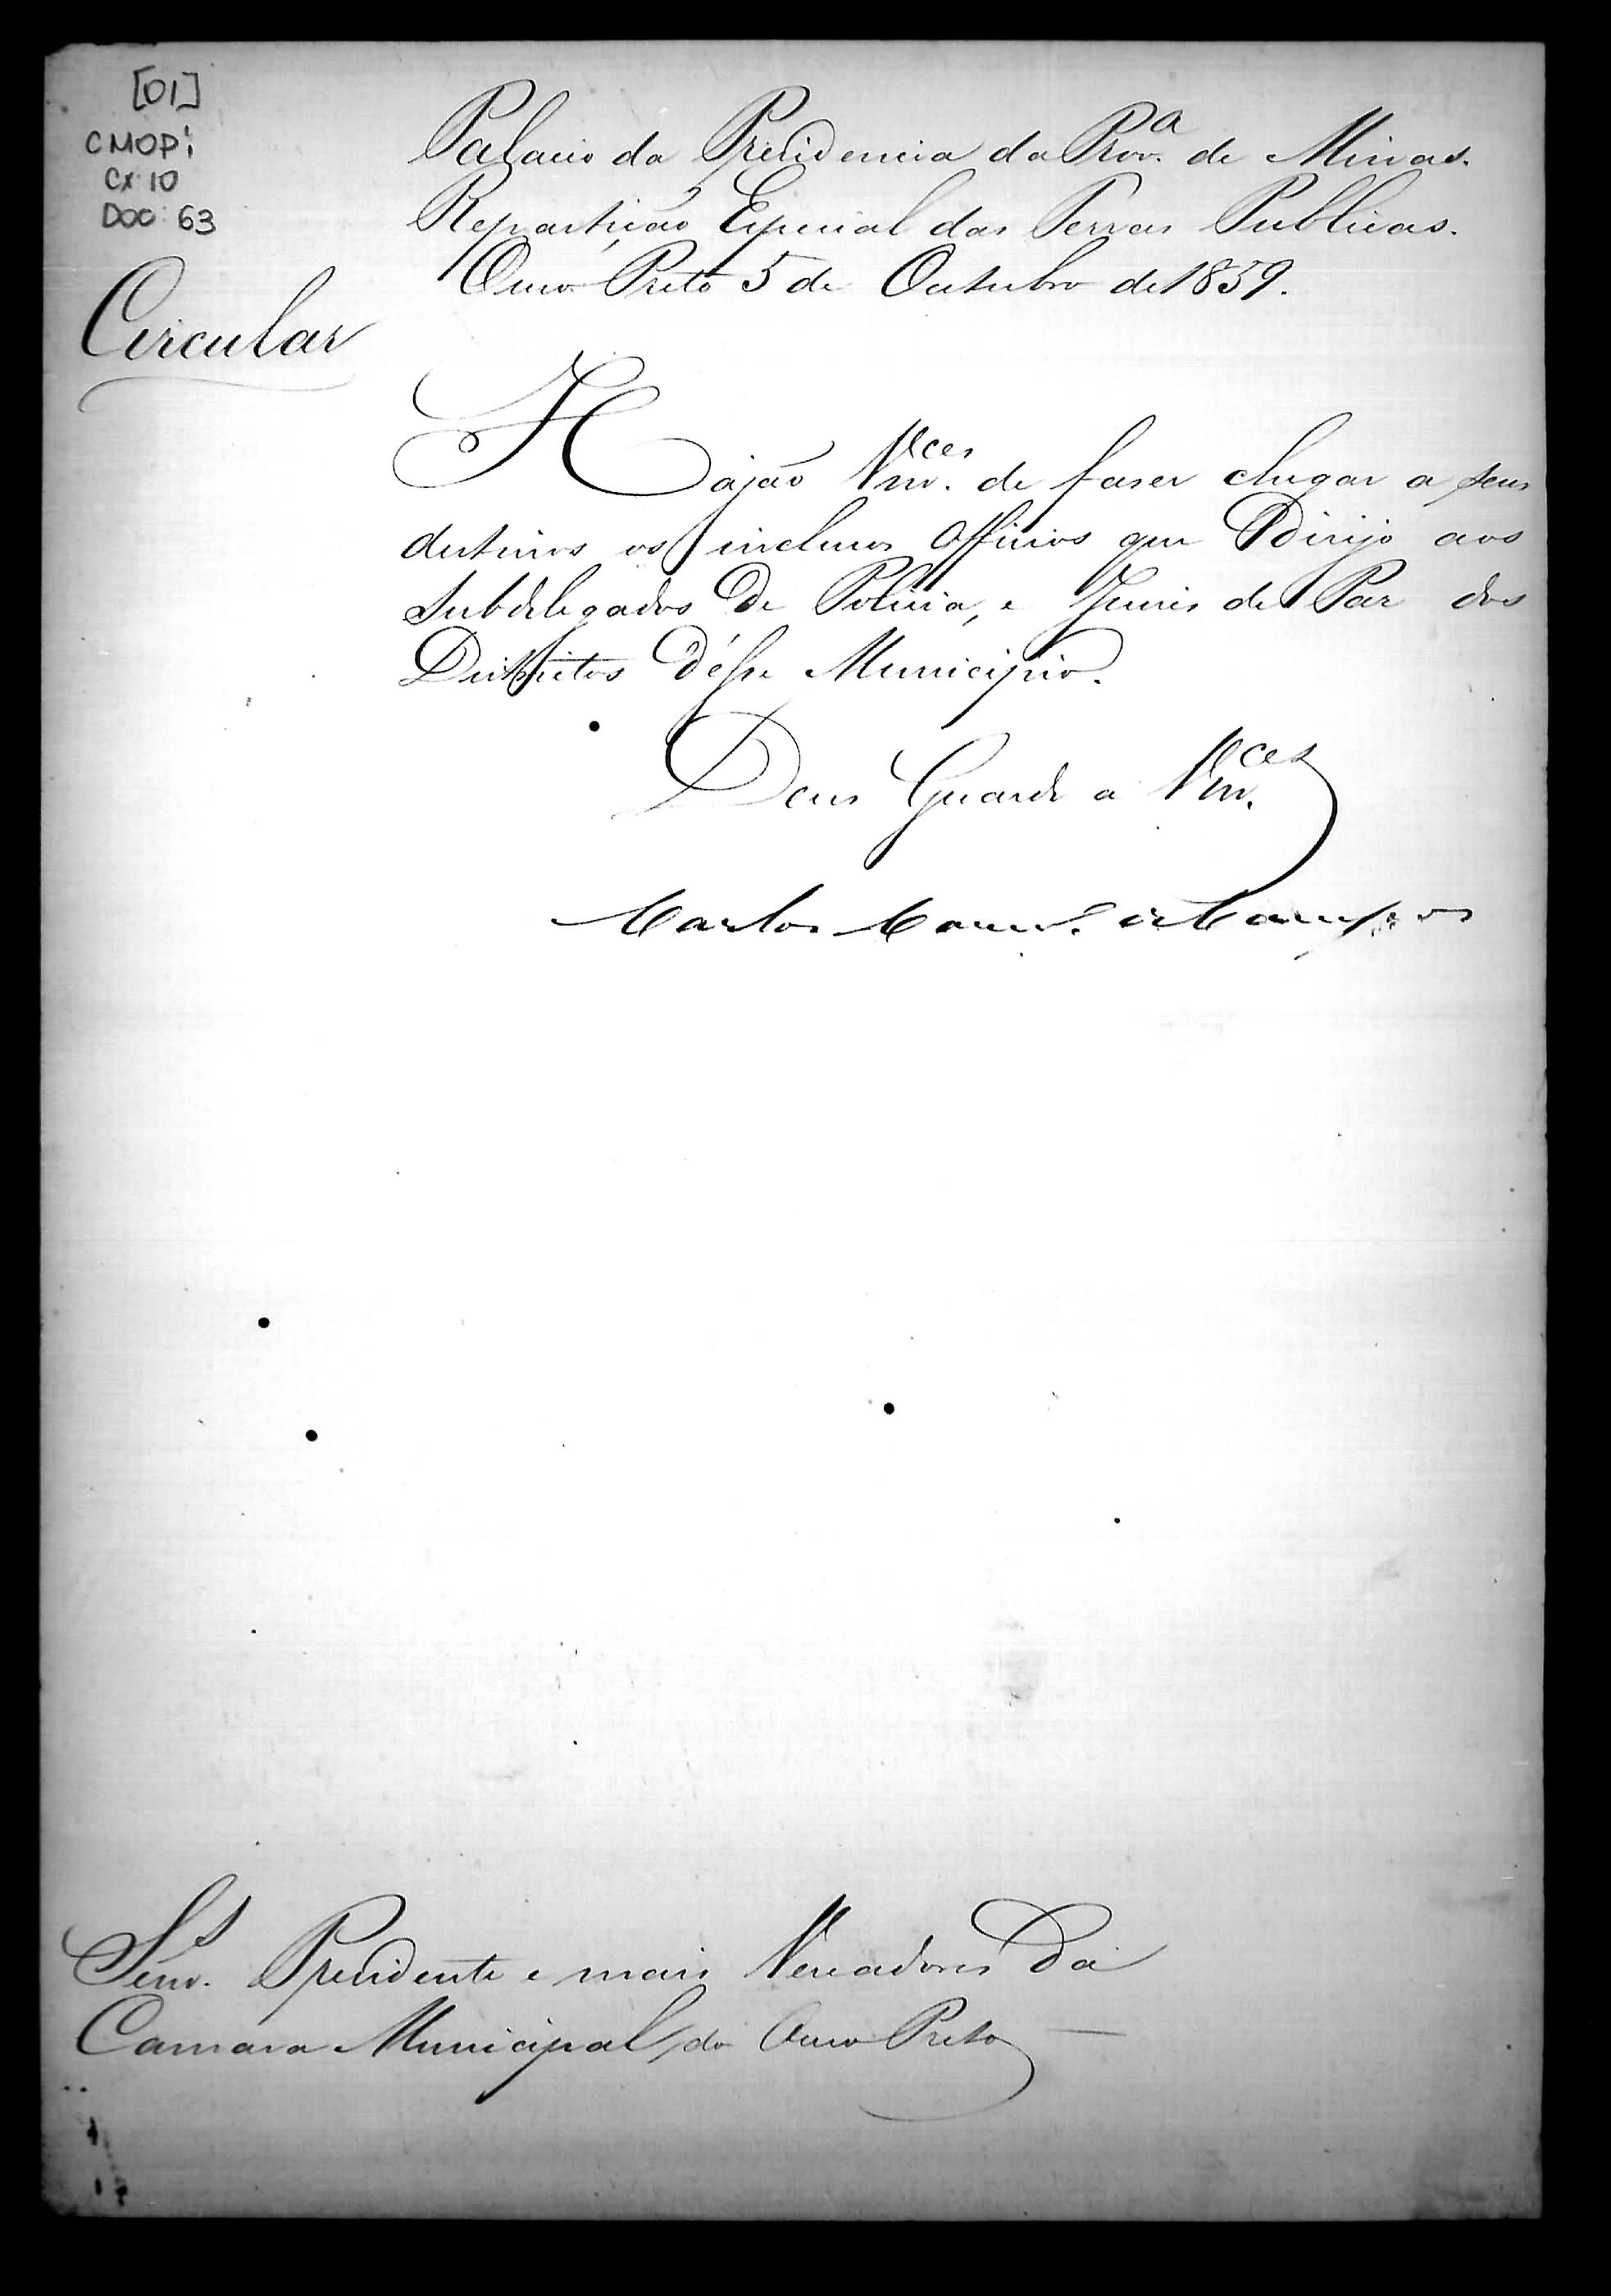 [01]
CMOP:
CX 10
DOC: 63
Palacio da Presidencia da Prov.a de Minas.
Repartição Especial das Terras Publicas.
Ouro Preto 5 de Outubro de 1859.
Circular
Hajão Vm.ces de faser chegar a seus
destinos os inclusos Officios que Dirijo aos
Subdelegados de Policia, e Juises de Paz dos
Districtos d'esse Municipio.
Deus Guarde a Vm.ces
Carlos Carn.o de Campos
Senr.s Presidente e mais Vereadores da
Camara Municipal do Ouro Preto